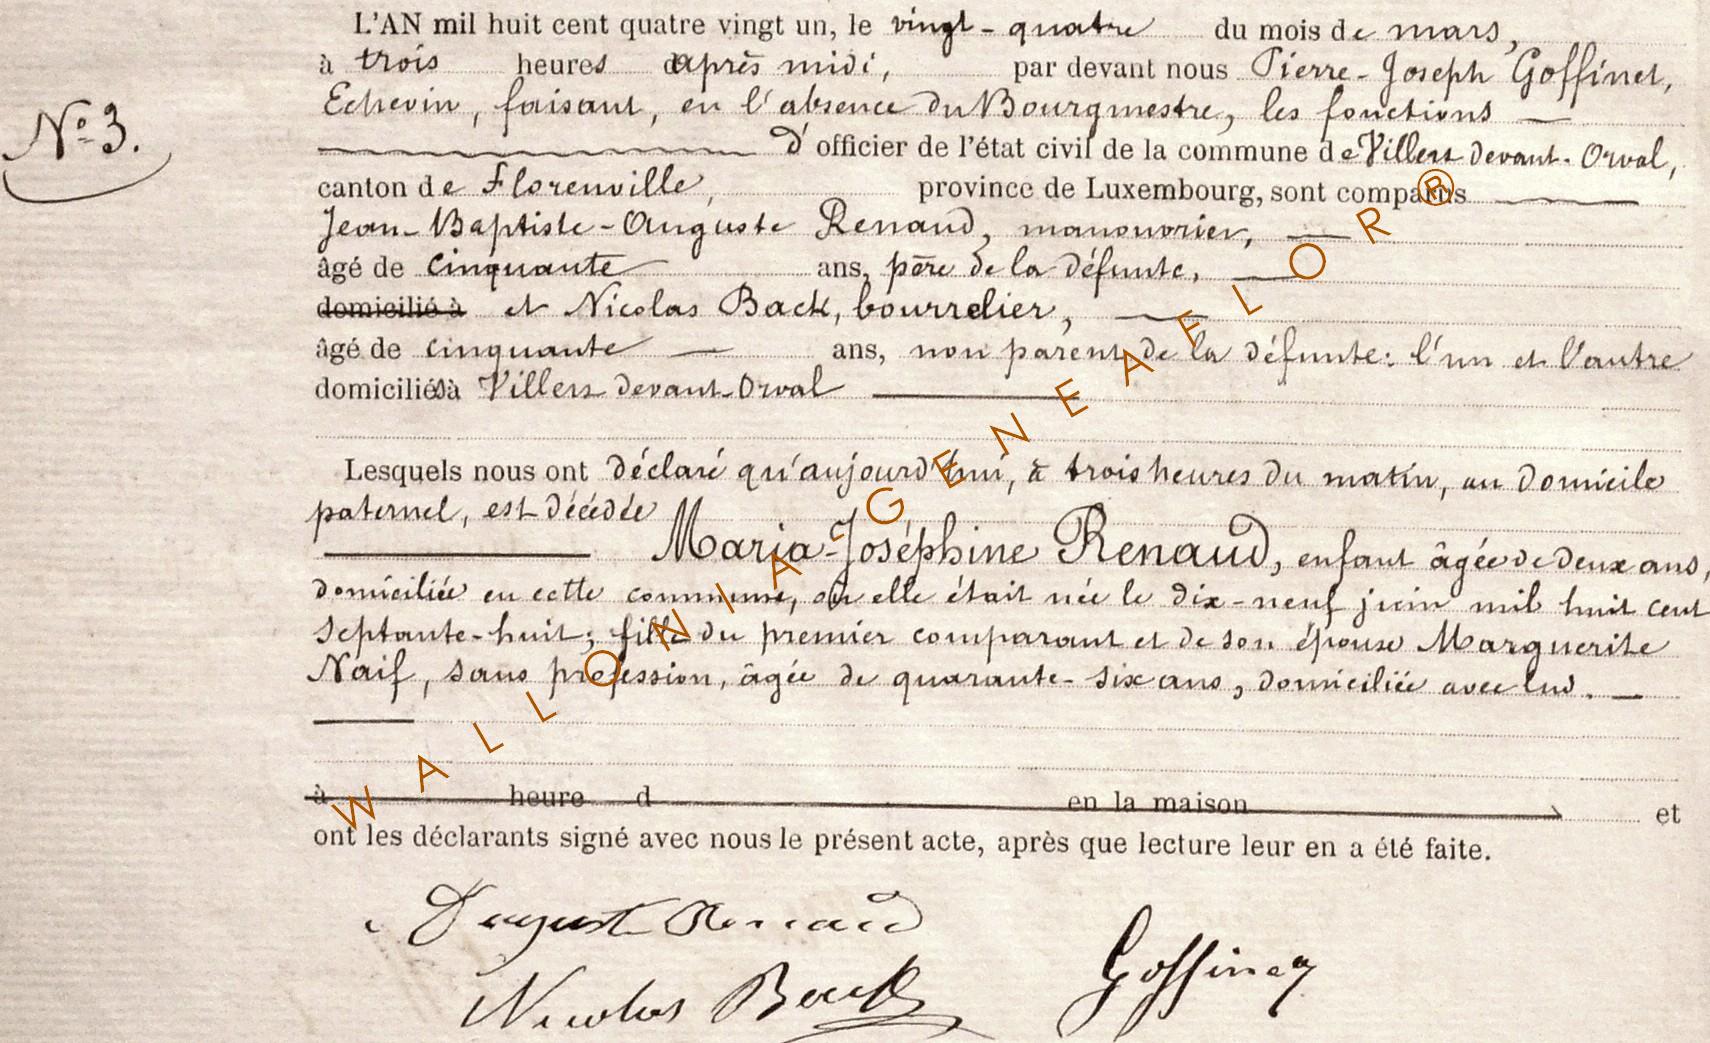 L'AN mil huit cent quatre vingt un, le vingt-quatre du mois de mars,
à trois heures après midi, par devant nous Pierre-Joseph Goffinet,
Echevin, faisant, en l'absence du Bourgmestre, les fonctions
N° 3.
d'officier de l'état civil de la commune de Villers devant-Orval,
canton de Florenville, province de Luxembourg, sont comparus
Jean-Baptiste-Auguste Renaud, manouvrier,
âgé de cinquante ans, père de la défunte,
domicilié à et Nicolas Back, bourrelier,
âgé de cinquante ans, non parent de la défunte: l'un et l'autre
domiciliés à Villers devant-Orval
Lesquels nous ont déclaré qu'aujourd'hui, à trois heures du matin, au domicile
paternel, est décédée
Maria-Joséphine Renaud, enfant âgée de deux ans,
domiciliée en cette commune, où elle était née le dix-neuf juin mil huit cent
septante-huit; fille du premier comparant et de son épouse Marguerite
Naif, sans profession, âgée de quarante-six ans, domiciliée avec lui.
à heure d en la maison et
ont les déclarants signé avec nous le présent acte, après que lecture leur en a été faite.
August Renaud
Nicolas Back
Goffinet
WALLONIA-GENEAFLOR®